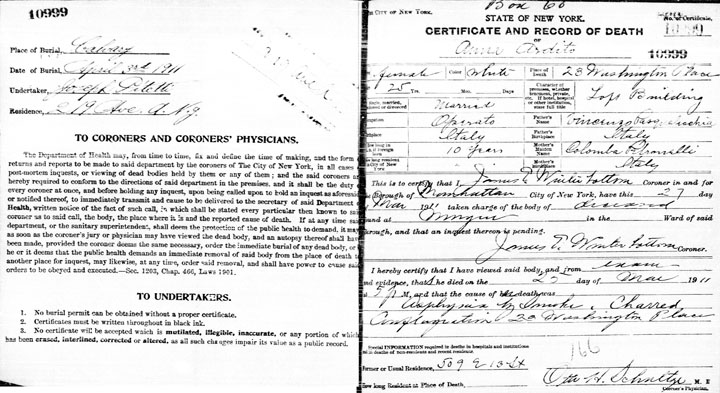 10999
Place of Burial, Calvary
Date of Burial, April 3rd 1911
Undertaker, Joseph
Residence, 219 Ave. A. N.Y.
TO CORONERS AND CORONERS' PHYSICIANS.
The Department of Health may, from time to time, fix and define the time of making, and the form
returns and reports to be made to said department by the coroners of The City of New York, in all cases
post-mortem inquests, or viewing of dead bodies held by them or any of them; and the said coroners a
hereby required to conform to the directions of said department in the premises, and it shall be the duty
every coroner at once, and before holding any inquest, upon being called upon to hold an inquest as aforesaid
or notified thereof, to immediately transmit and cause to be delivered to the secretary of said Department
Health, written notice of the fact of such call, in which shall be stated every particular then known to
coroner as to said call, the body, the place where it is and the reported cause of death. If at any time sa
department, or the sanitary superintendent, shall deem the protection of the public health to demand, it ma
as soon as the coroner's jury or physician may have viewed the dead body, and an autopsy thereof shall hav
been made, provided the coroner deems the same necessary, order the immediate burial of any dead body, or
he or it deems that the public health demands an immediate removal of said body from the place of death to
another place for inquest, may likewise, at any time, order said removal, and shall have power to cause said
orders to be obeyed and executed.—Sec. 1203, Chap. 466, Laws 1901.
TO UNDERTAKERS.
1. No burial permit can be obtained without a proper certificate.
2. Certificates must be written throughout in black ink.
3. No certificate will be accepted which is mutilated, illegible, inaccurate, or any portion of which
has been erased, interlined, corrected or altered, as all such changes impair its value as a public record.
Box 60
CITY OF NEW YORK.
STATE OF NEW YORK.
No. of Certificate,
CERTIFICATE AND RECORD OF DEATH
OF
Anna Ardito
10999
female Color White Place of Death 23 Washington Place
25 Yrs. Mos. Days
Character of premises, whether tenement, private, etc. If hotel, hospital or other institution, state full title
Loft Building
Married
Operato Father's Name Vincenzo
Italy Father's Birthplace Italy
10 Years Mother's Maiden Name Colomba
Mother's Birthplace Italy
This is to certify that I James E Winterbottom Coroner in and for
Borough of Manhattan City of New York, have this 27 day
Mar 1911 taken charge of the body of deceased
found at Morgue in the Ward of said
Borough, and that an inquest thereon is pending.
James E. Winterbottom Coroner.
I hereby certify that I have viewed said body, and from exam
and evidence, that she died on the 25 day of Mar 1911
at 5 P. M., and that the cause of her death was
Asphyxia by Smoke. Charred
Conflagration 23 Washington Place
Special INFORMATION required in deaths in hospitals and institutions
in deaths of non-residents and recent residents.
166
Former or Usual Residence, 509 E 13 St
How long Resident at Place of Death,
Otto H. Schultze M. D
Coroner's Physician.